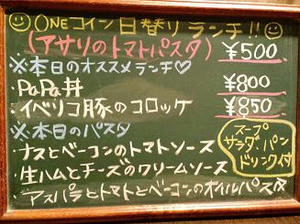 ONEコイン日替りランチ!!
(アサリのトマトパスタ) ¥500
※本日のオススメランチ♡
・PaPa丼 ¥800
・イベリコ豚のコロッケ ¥850
※本日のパスタ
・ナスとベーコンのトマトソース
・生ハムとチーズのクリームソース
・アスパラとトマトとベーコンのオイルパスタ
スープ
サラダ パン
ドリンク付